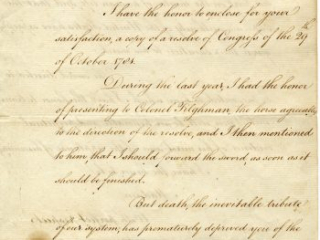 I have the honor to enclose for your
satisfaction, a copy of a resolve of Congress of the 29th
of October 1781.
During the last year, I had the honor
of presenting to Colonel Tilghman, the horse agreeably
to the direction of the resolve, and I then mentioned
to him, that I should forward the sword, as soon as it
should be finished.
But death, the inevitable tribute
of our system, has prematurely deprived you of the